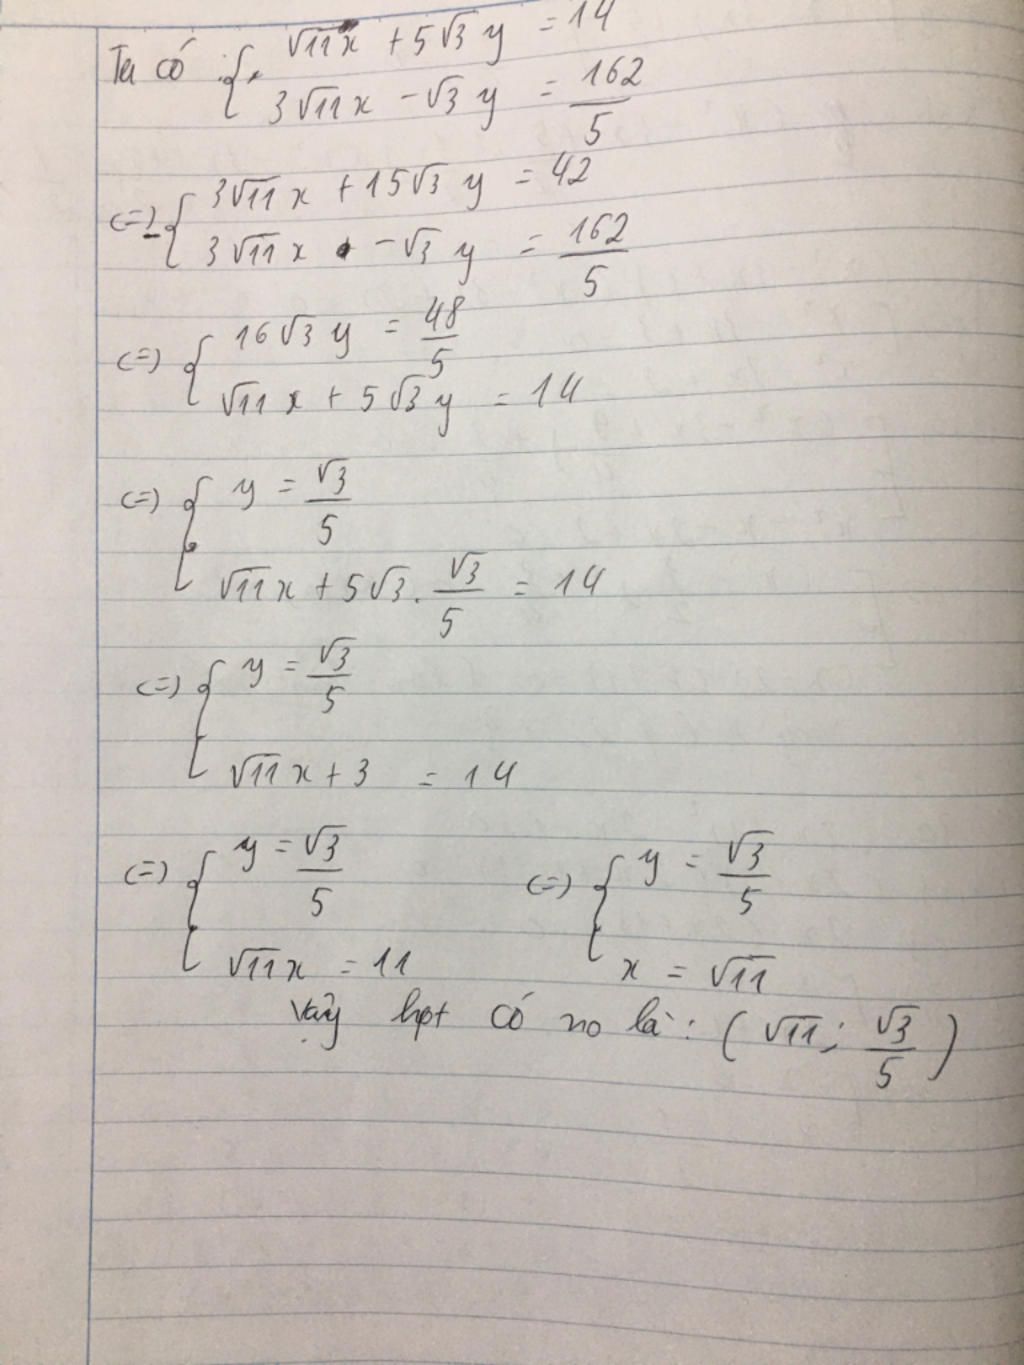 Ta có { √11x + 5√3 y = 14
3√11x - √3 y = 162/5
(=) { 3√11 x + 15√3 y = 42
3√11 x - √3 y = 162/5
(=) { 16√3 y = 48/5
√11 x + 5√3 y = 14
(=) { y = √3/5
√11 x + 5√3 . √3/5 = 14
(=) { y = √3/5
√11 x + 3 = 14
(=) { y = √3/5 (=) { y = √3/5
√11 x = 11 x = √11
Vậy hpt có no là : (√11 ; √3/5)